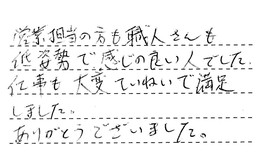 営業担当の方も職人さんも
低姿勢で感じの良い人でした。
仕事も大変ていねいで満足
しました。
ありがとうございました。